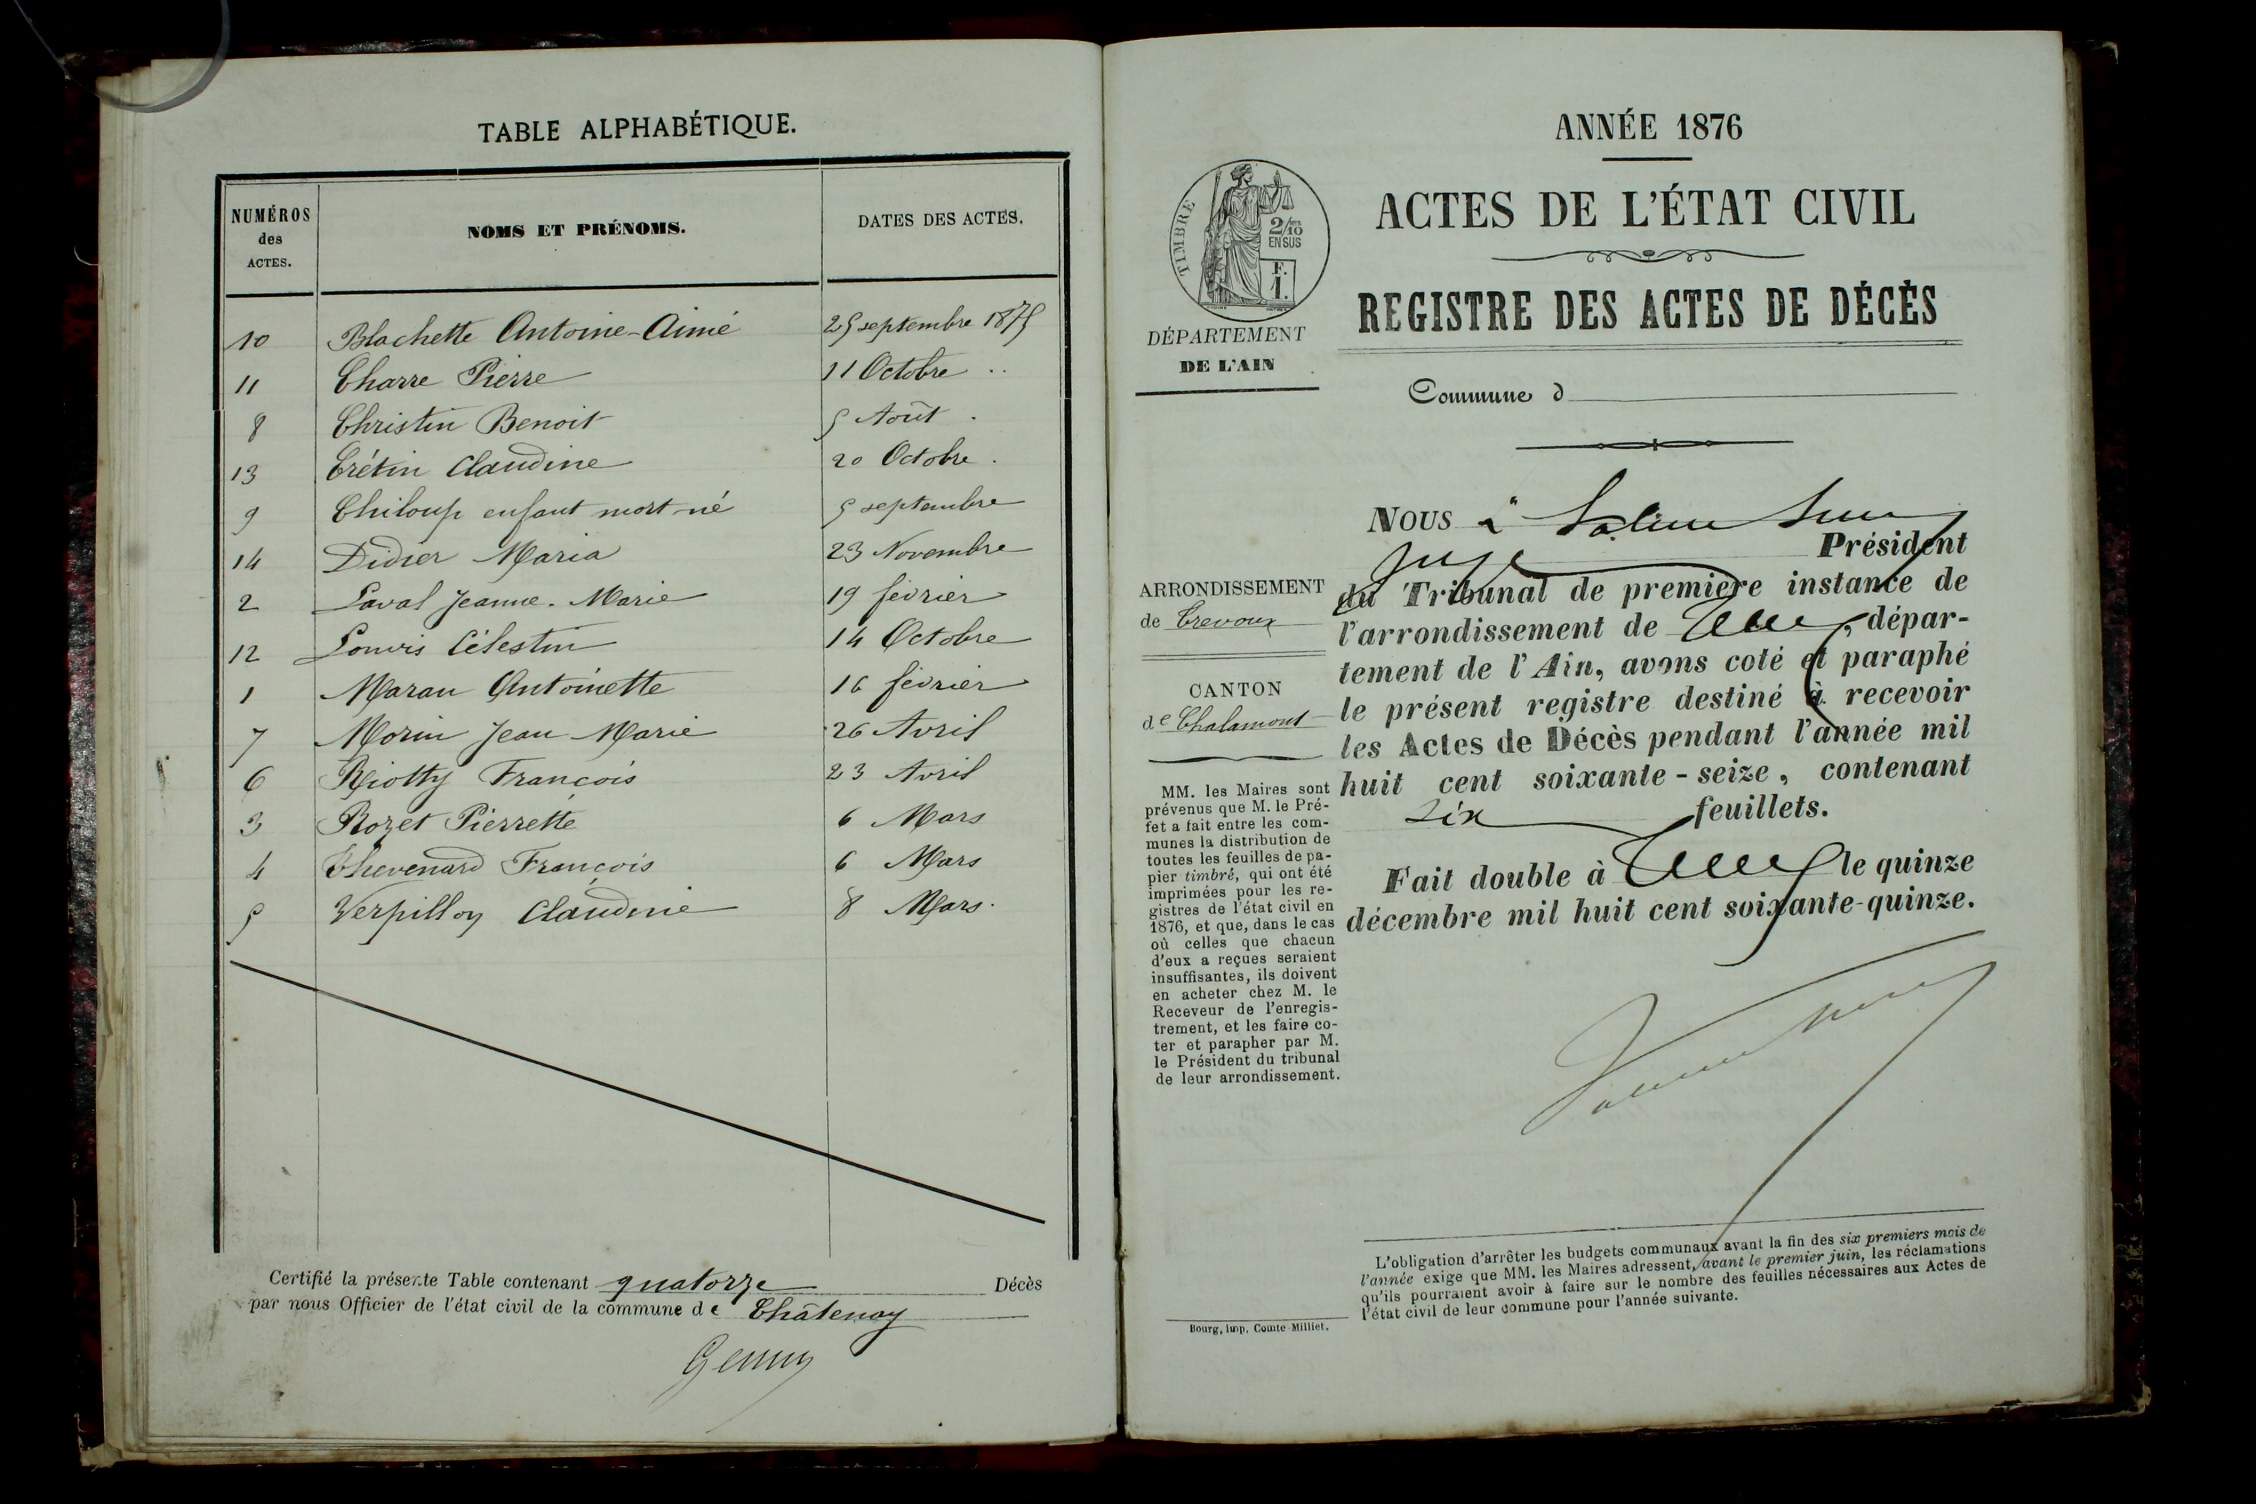 TABLE ALPHABÉTIQUE.
NUMÉROS
des
ACTES.
NOMS ET PRÉNOMS.
DATES DES ACTES.
10 Blachette Antoine-Aimé 25 septembre 1875
11 Charre Pierre 11 Octobre ..
8 Christin Benoit 5 Août .
13 Crétin Claudine 20 Octobre .
9 Chiloup enfant mort-né 5 septembre
14 Didier Maria 23 Novembre
2 Laval Jeanne-Marie 19 février
12 Louvis Célestin 14 Octobre
1 Maran Antoinette 16 février
7 Morin Jean Marie 26 Avril
6 Riotty François 23 Avril
3 Rozet Pierrette 6 Mars
4 Thevenard François 6 Mars
5 Verpilloy Claudine 8 Mars.
Certifié la présente Table contenant quatorze Décès
par nous Officier de l'état civil de la commune de Châtenay
ANNÉE 1876
ACTES DE L'ÉTAT CIVIL
REGISTRE DES ACTES DE DÉCÈS
TIMBRE
2/10
EN SUS
F.
1.
DÉPARTEMENT
DE L'AIN
Commune d
ARRONDISSEMENT
de Trevoux
CANTON
de Chalamont
MM. les Maires sont
prévenus que M. le Pré-
fet a fait entre les com-
munes la distribution de
toutes les feuilles de pa-
pier timbré, qui ont été
imprimées pour les re-
gistres de l'état civil en
1876, et que, dans le cas
où celles que chacun
d'eux a reçues seraient
insuffisantes, ils doivent
en acheter chez M. le
Receveur de l'enregis-
trement, et les faire co-
ter et parapher par M.
le Président du tribunal
de leur arrondissement.
NOUS
juge Président
du Tribunal de première instance de
l'arrondissement de , dépar-
tement de l'Ain, avons coté et paraphé
le présent registre destiné à recevoir
les Actes de Décès pendant l'année mil
huit cent soixante-seize, contenant
six feuillets.
Fait double à le quinze
décembre mil huit cent soixante-quinze.
L'obligation d'arrêter les budgets communaux avant la fin des six premiers mois de
l'année exige que MM. les Maires adressent, avant le premier juin, les réclamations
qu'ils pourraient avoir à faire sur le nombre des feuilles nécessaires aux Actes de
l'état civil de leur commune pour l'année suivante.
Bourg, imp. Comte-Milliet.